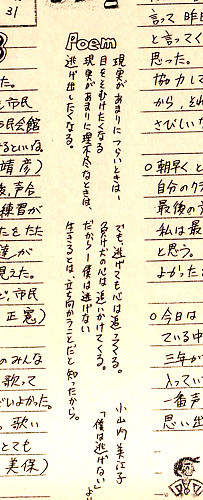 Poem
現実が あまりに つらいときは―
目をそむけたくなる
現実があまりに理不尽なときは、
逃げ出したくなる。
でも、逃げても心は追ってくる。
負け犬の心は追いかけてくる。
だから―僕は逃げない
生きることは、立ち向かうことだと知ったから。
小山内美江子
「僕は逃げない」より
31
た。
市民
民会館
靖彦)
後、声会
練習が
をたた
達が
見えた。
ど、市民
正憲)
のみんな
歌って
よかった。
歌い
とても
美保)
言って 昨日
と言ってく
思った。
協力して
から、それ
さびしいな
○朝早くと
自分のクラ
最後の
私は最
と思う。
よかった
○今日は
ている中
三年が
入ってい
一番声
思い出